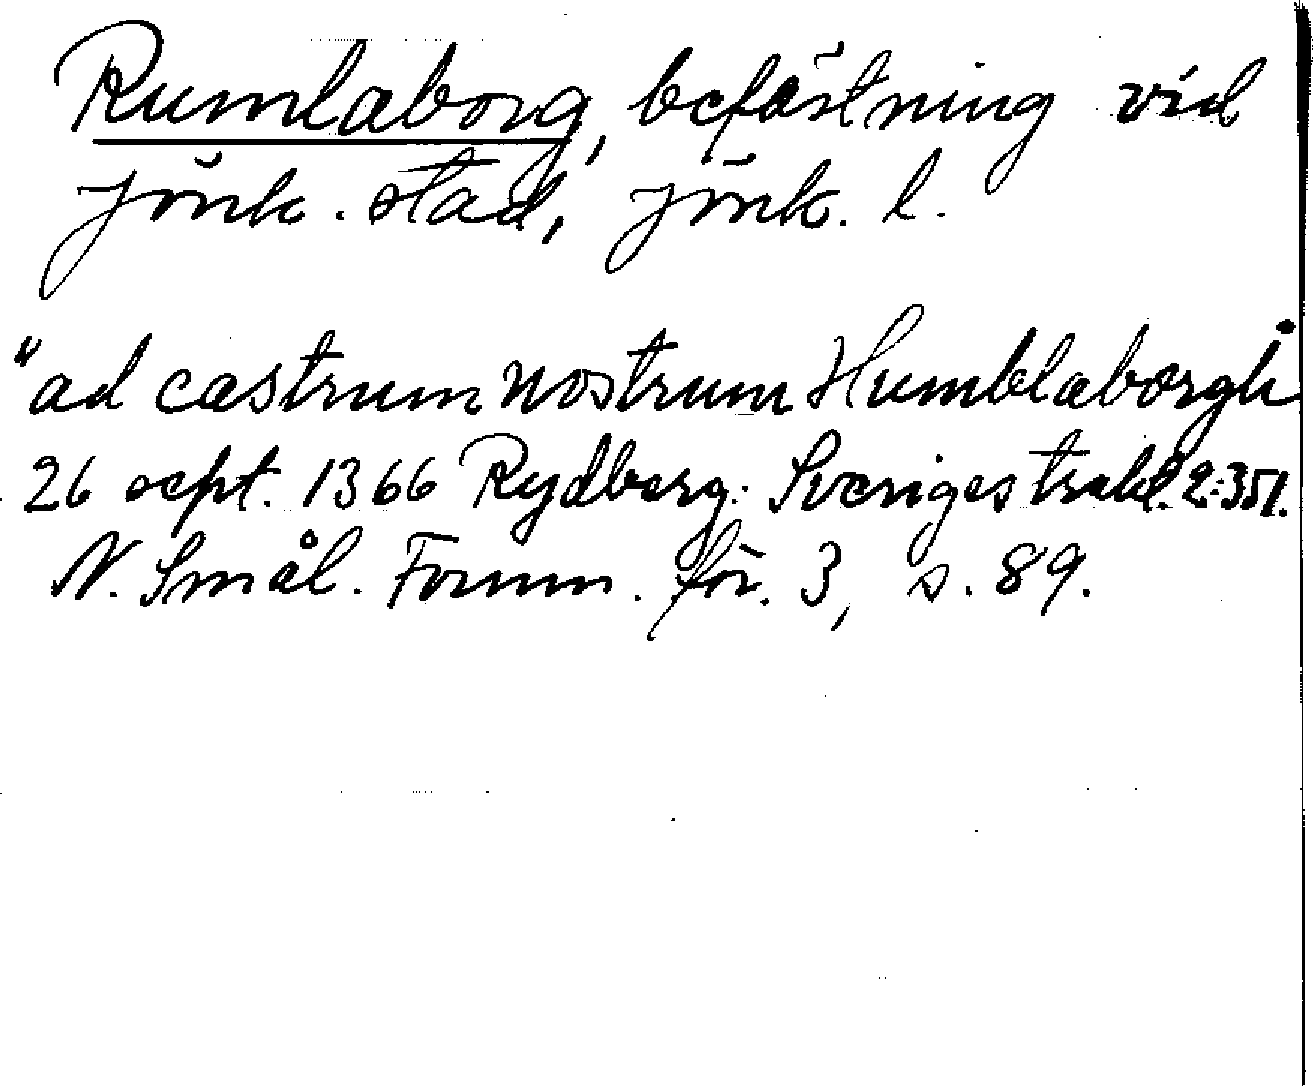 Rumlaborg, befästning vid
Jönk. stad, Jönk. l.
"ad castrum nostrum Humblaborgh"
26 sept. 1366 Rydberg: Sveriges trakt. 2:351.
N. Smål. Fornm. för. 3, s. 89.